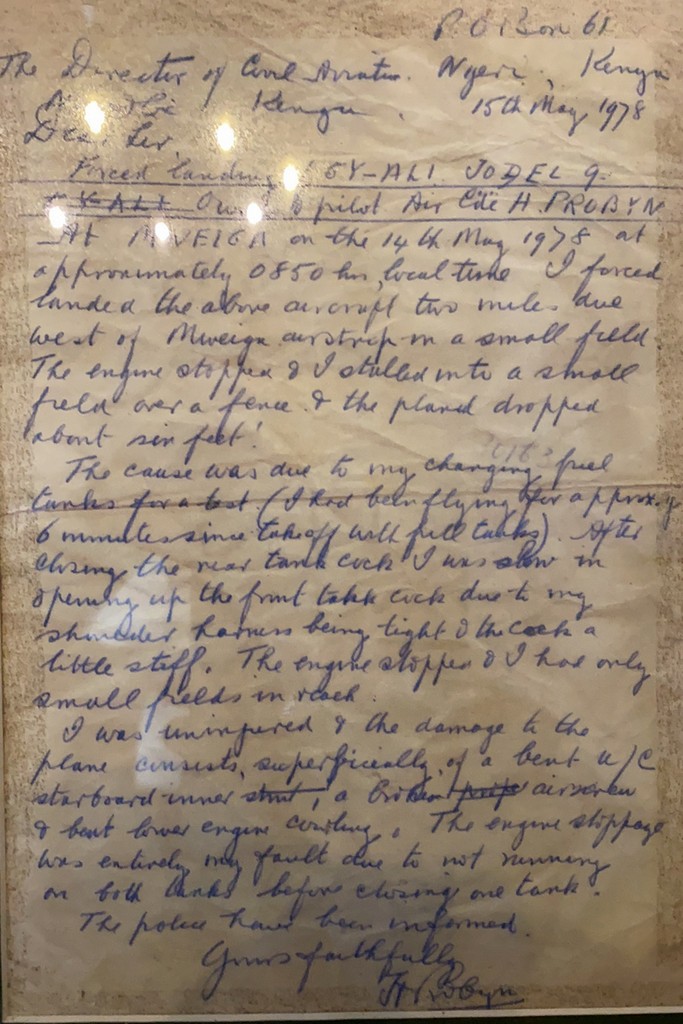 P.O Box 61
The Director of Civil Aviation. Nyeri, Kenya
Kenya. 15th May 1978
Dear Sir,
Forced landing 5Y-ALI JODEL 9.
5Y-ALI Owner & pilot Air Cdre H. PROBYN
At MWEIGA on the 14th May 1978 at
approximately 0850 hrs, local time I forced
landed the above aircraft two miles due
west of Mweiga airstrip in a small field.
The engine stopped & I stalled into a small
field over a fence & the plane dropped
about six feet!
The cause was due to my changing fuel
tanks for a test (I had been flying for approx.
6 minutes since takeoff with full tanks). After
closing the rear tank cock I was slow in
opening up the front tank cock due to my
shoulder harness being tight & the cock a
little stiff. The engine stopped & I had only
small fields in reach.
I was uninjured & the damage to the
plane consists, superficially, of a bent u/c
starboard inner strut, a broken prop airscrew
& bent lower engine cowling. The engine stoppage
was entirely my fault due to not running
on both tanks before closing one tank.
The police have been informed.
Yours faithfully
H Probyn